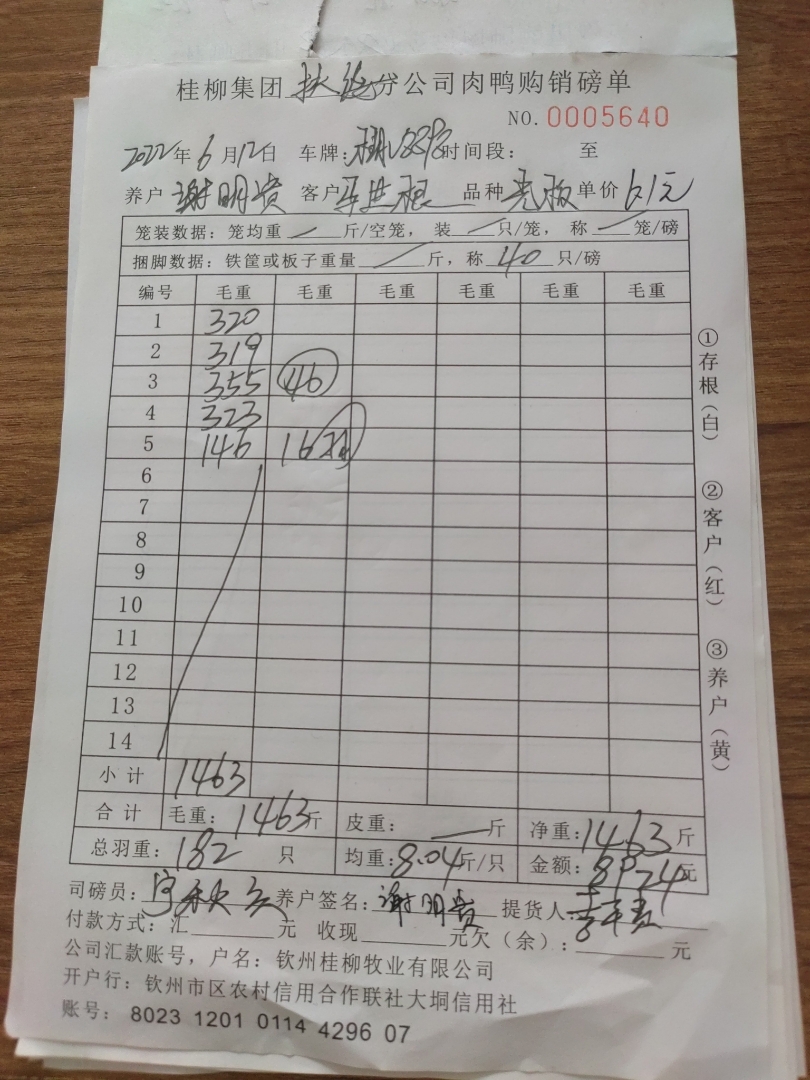 桂柳集团扶绥分公司肉鸭购销磅单
NO. 0005640
2022年6月12日 车牌: 时间段: 至
养户 谢明贵 客户 品种 壳板 单价 6.1元
笼装数据: 笼均重 — 斤/空笼, 装 — 只/笼, 称 — 笼/磅
捆脚数据: 铁筐或板子重量 — 斤, 称 40 只/磅
编号 毛重 毛重 毛重 毛重 毛重 毛重
1 320
2 319
3 355 46
4 323
5 146 16羽
6
7
8
9
10
11
12
13
14
小计 1463
合计 毛重: 1463斤 皮重: — 斤 净重: 1463斤
总羽重: 182 只 均重: 8.04斤/只 金额: 8924元
司磅员: 养户签名: 谢明贵 提货人:
付款方式: 汇 元 收现 元欠(余): 元
公司汇款账号, 户名: 钦州桂柳牧业有限公司
开户行: 钦州市区农村信用合作联社大垌信用社
账号: 8023 1201 0114 4296 07
①存根(白)
②客户(红)
③养户(黄)